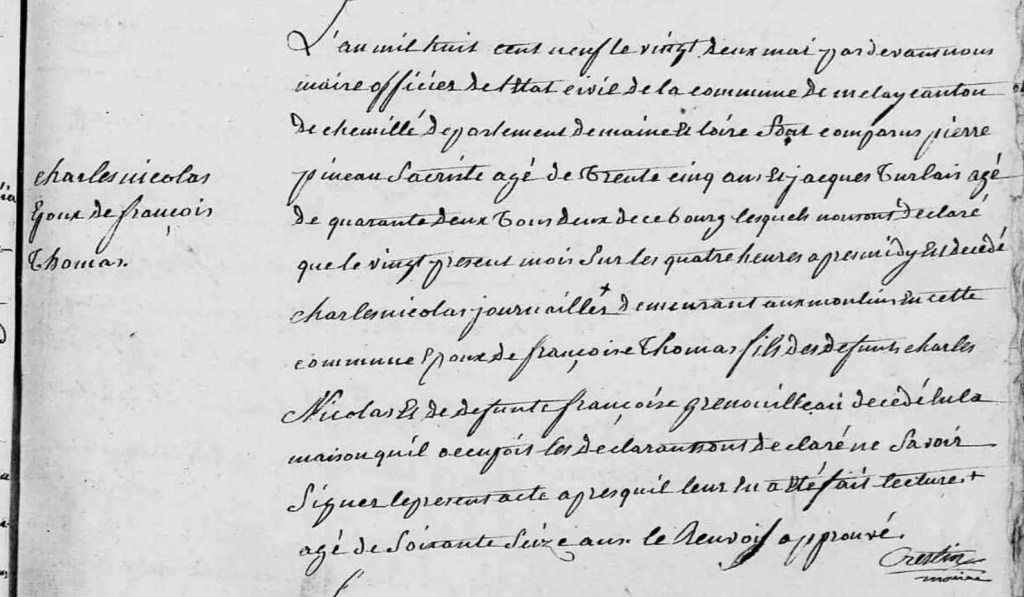 charles nicolas
Epoux de françois
Thomas.
L'an mil huit cent neuf le vingt deux mai par devant nous
maire officier de l'Etat civil de la commune de melay canton
de chemillé departement de maine Et loire Sont comparus pierre
pineau Sacriste agé de Trente cinq ans Et jacques Turlais agé
de quarante deux Tous deux de ce bourg lesquels nous ont déclaré
que le vingt present mois Sur les quatre heures apres midy Est decédé
charles nicolas journaillier + demeurant aux moulins En cette
commune Epoux de françoise Thomas fils des defunts charles
Nicolas Et de defunte françoise grenouilleau decédé En la
maison qu'il occupois les déclarants ont déclaré ne Savoir
Signer le present acte apres qu'il leur En a Eté fait lecture +
agé de Soixante Seize ans le Renvois approuvé.
Crestin
maire